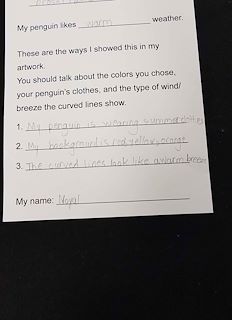 My penguin likes warm weather.
These are the ways I showed this in my
artwork.
You should talk about the colors you chose,
your penguin's clothes, and the type of wind/
breeze the curved lines show.
1. My penguin is wearing summer clothes
2. My background is red, yellow, orange
3. The curved lines look like a warm breeze
My name: